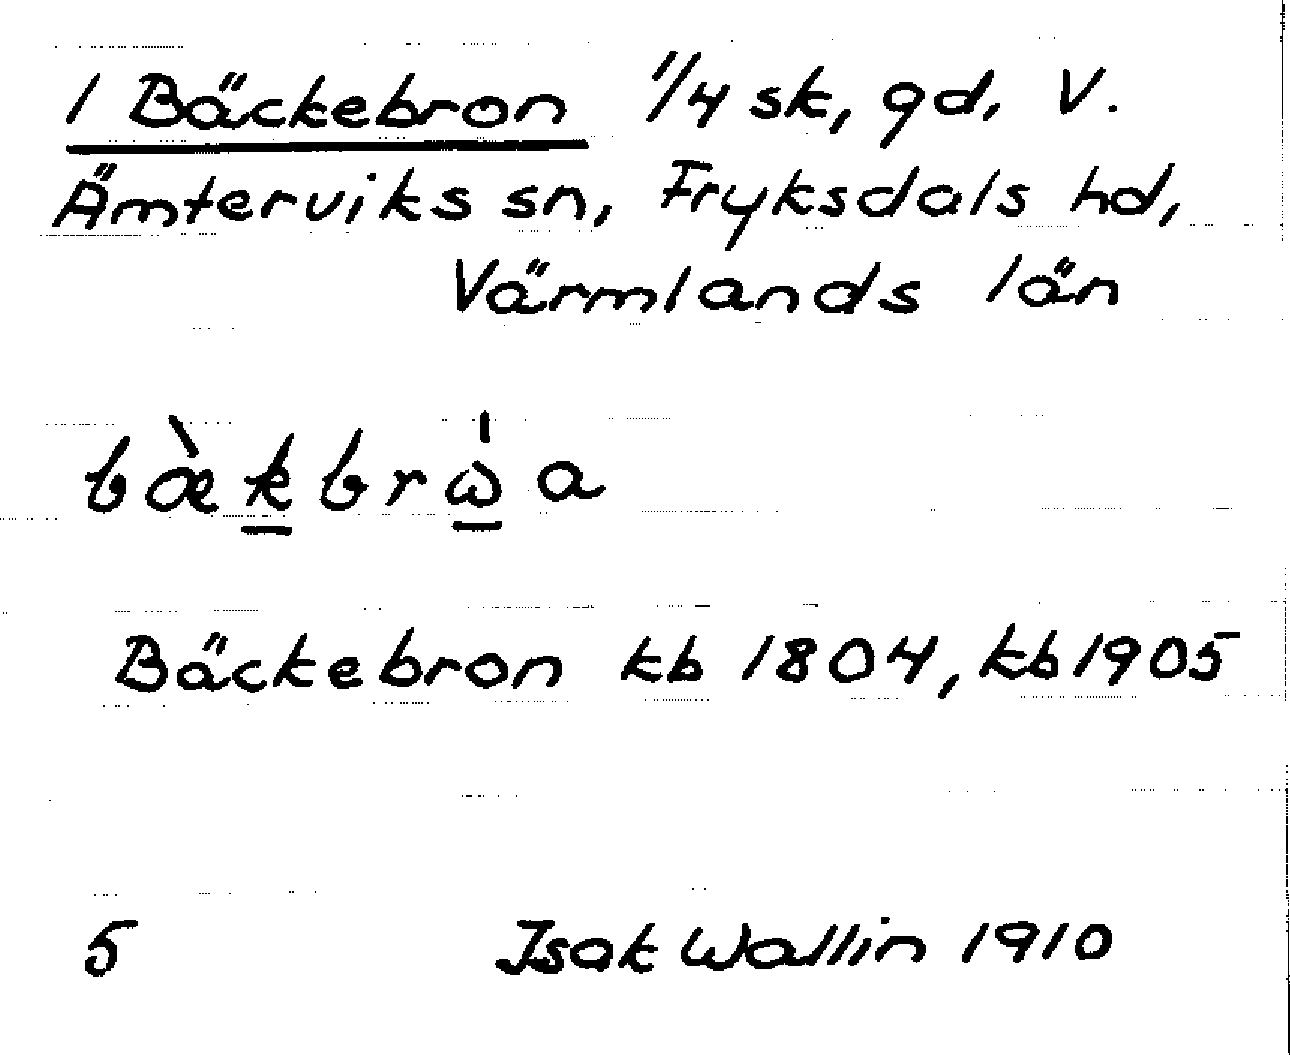 1 Bäckebron 1/4 sk, gd, V.
Ämterviks sn, Fryksdals hd,
Värmlands län
bæ̀k̲brω̲̍a
Bäckebron kb 1804, kb 1905
5 Isak Wallin 1910